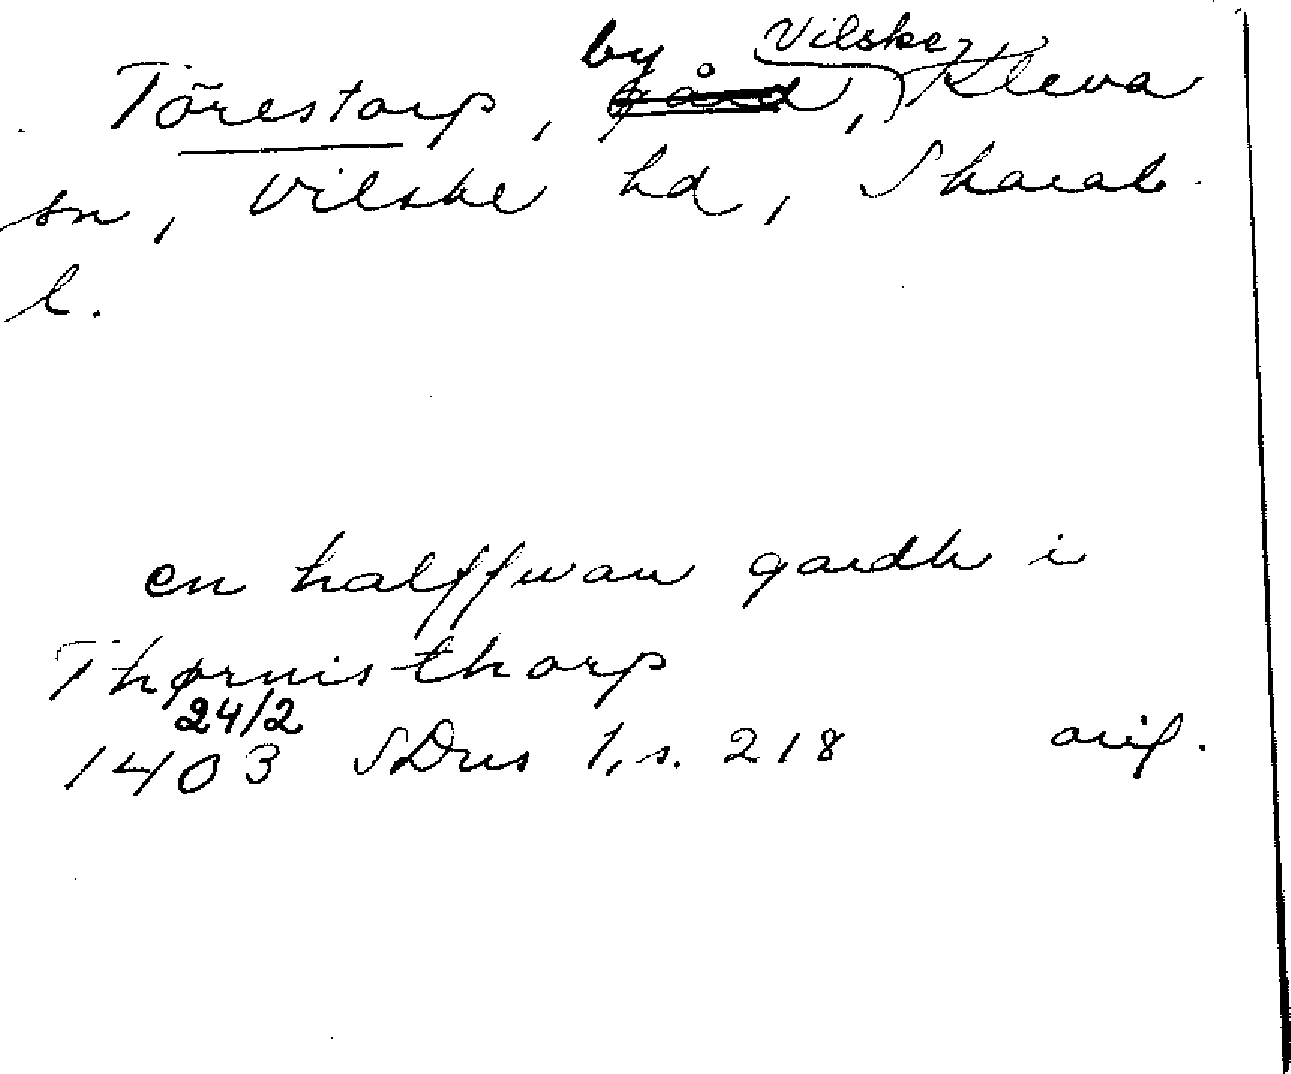 Törestorp, by, Vilske-Kleva
sn, Vilske hd, Skarab.
l.
en halffwan gardh i
Thørnisthorp
24/2
1403 SDns 1, s. 218 orig.